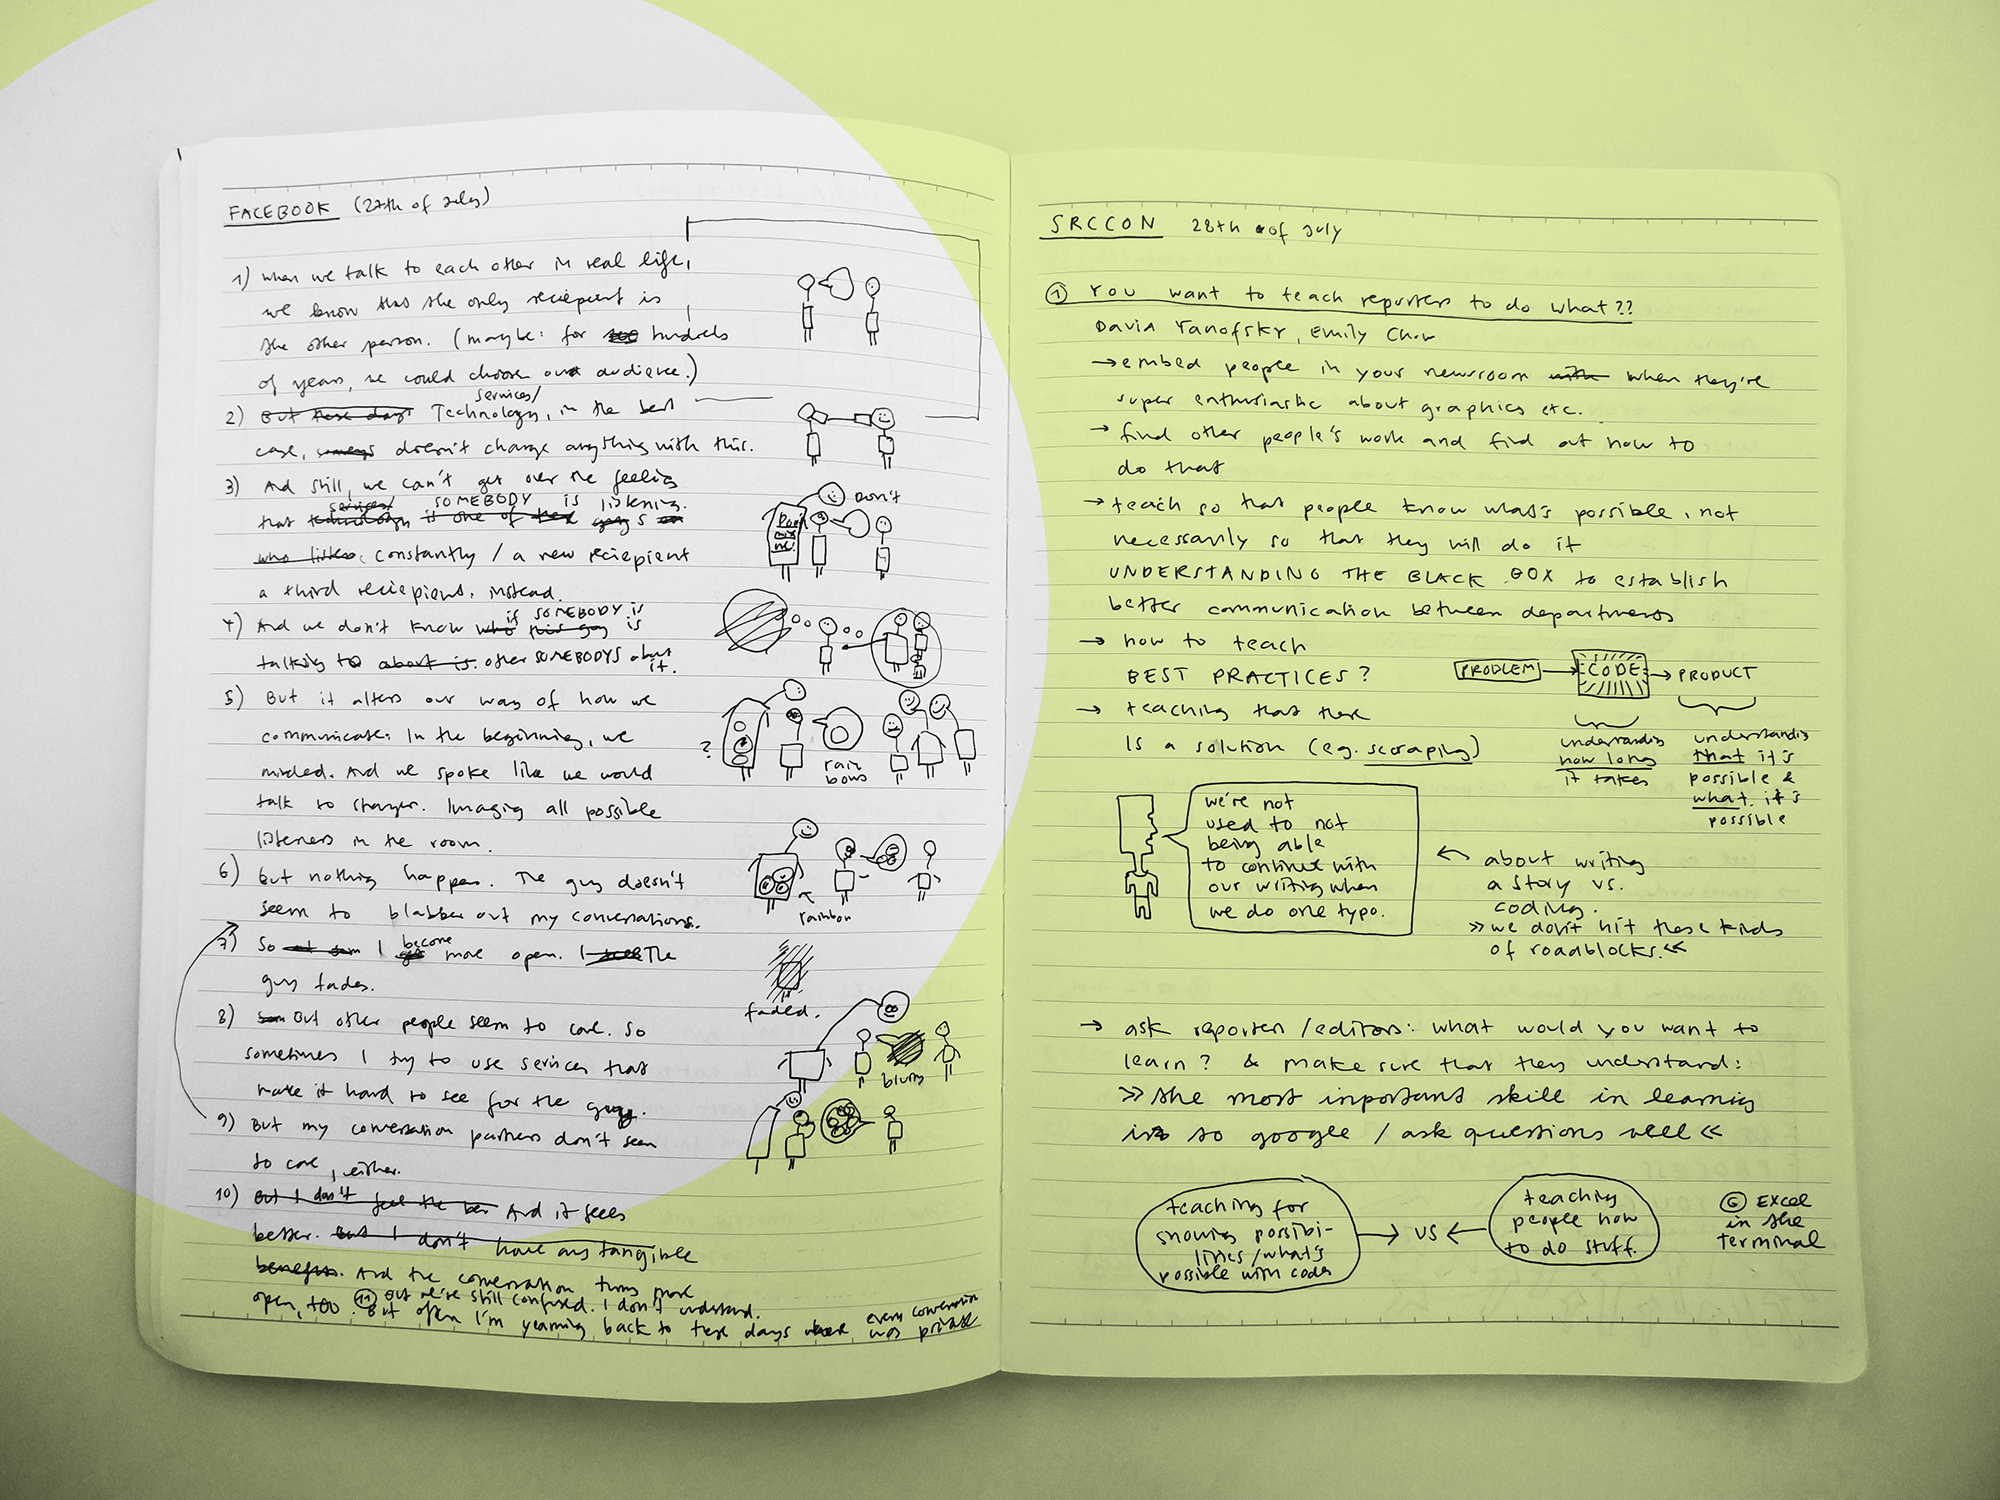 FACEBOOK (27th of July)
1) when we talk to each other in real life,
we know that the only reciepient is
the other person. (maybe: for hundreds
of years, we could choose our audience.)
services/
2) But these days Technology, in the best
case, doesn't change anything with this.
3) And still, we can't get over the feeling
services/ SOMEBODY is listening.
that technology is one of these guys
who listen. constantly / a new reciepient
a third reciepient, instead.
Don't
if SOMEBODY is
4) And we don't know who this guy is
talking to about is other SOMEBODYS about
it.
5) But it alters our way of how we
communicate: In the beginning, we
minded. And we spoke like we would
talk to stranger. Imaging all possible
listeners in the room.
?
rain
bows
6) But nothing happen. The guy doesn't
seem to blabber out my conversations.
rainbow
become
7) So I more open. I The
guy fades.
faded.
8) But other people seem to care. So
sometimes I try to use services that
make it hard to see for the guy.
blurry
9) But my conversation partners don't seem
to care, either.
10) But I don't feel the And it feels
better. But I don't have any tangible
benefits. And the conversation turns more
open, too. 11 But we're still confused. I don't understand.
But often I'm yearning back to these days where every conversation
was private
SRCCON 28th of July
1 YOU want to teach reporters to do what??
David Yanofsky, Emily Chow
→ embed people in your newsroom with when they're
super enthusiastic about graphics etc.
→ find other people's work and find out how to
do that
→ teach so that people know what's possible, not
necessarily so that they will do it
UNDERSTANDING THE BLACK BOX to establish
better communication between departments
→ how to teach
BEST PRACTICES?
PROBLEM → CODE → PRODUCT
→ teaching that there
is a solution (e.g. scraping)
understanding
how long
it takes
understanding
that it's
possible &
what it's
possible
we're not
used to not
being able
to continue with
our writing when
we do one typo.
← about writing
a story vs.
coding.
»we don't hit these kinds
of roadblocks.«
→ ask reporters/editors: what would you want to
learn? & make sure that they understand:
»the most important skill in learning
is to google / ask questions well«
teaching for
showing possibi-
lities/what's
possible with code
→ VS ←
teaching
people how
to do stuff.
6 EXCEL
in the
terminal